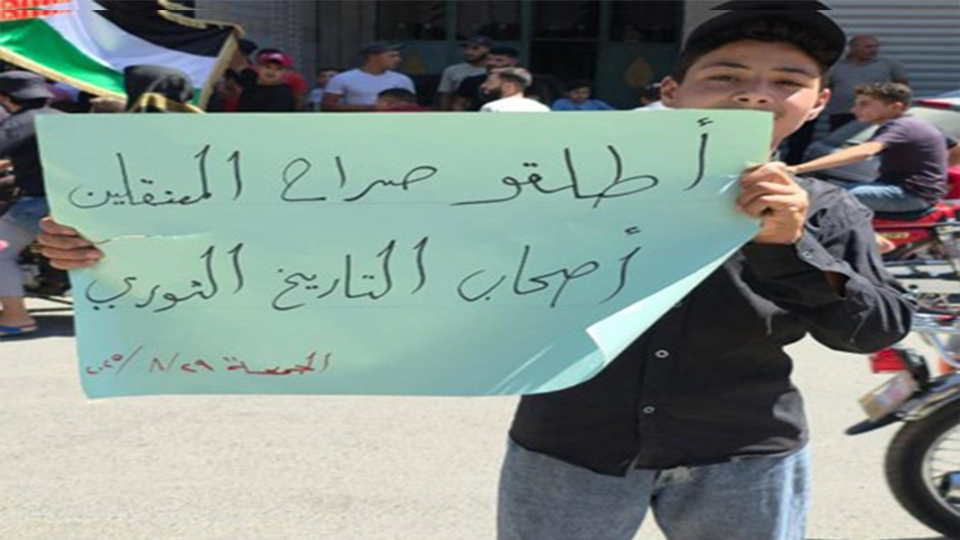 أطلقو صراح المعتقلين
أصحاب التاريخ الثوري
الجمعة ٢٩/٨/٢٠٢٥